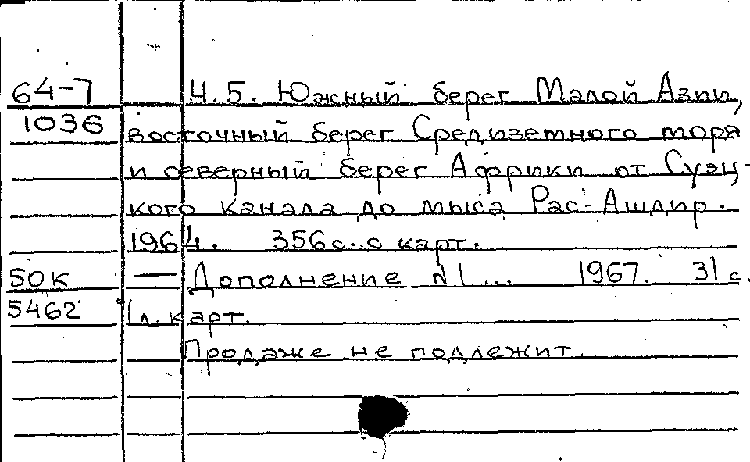 64-7 Ч.5. Южный берег Малой Азии,
1036 восточный берег Средиземного моря
и северный берег Африки от Суэц-
кого канала до мыса Рас-Ашдир.
1964. 356 с. с карт.
50К — Дополнение №1... 1967. 31 с.
5462 1 л. карт.
Продаже не подлежит.